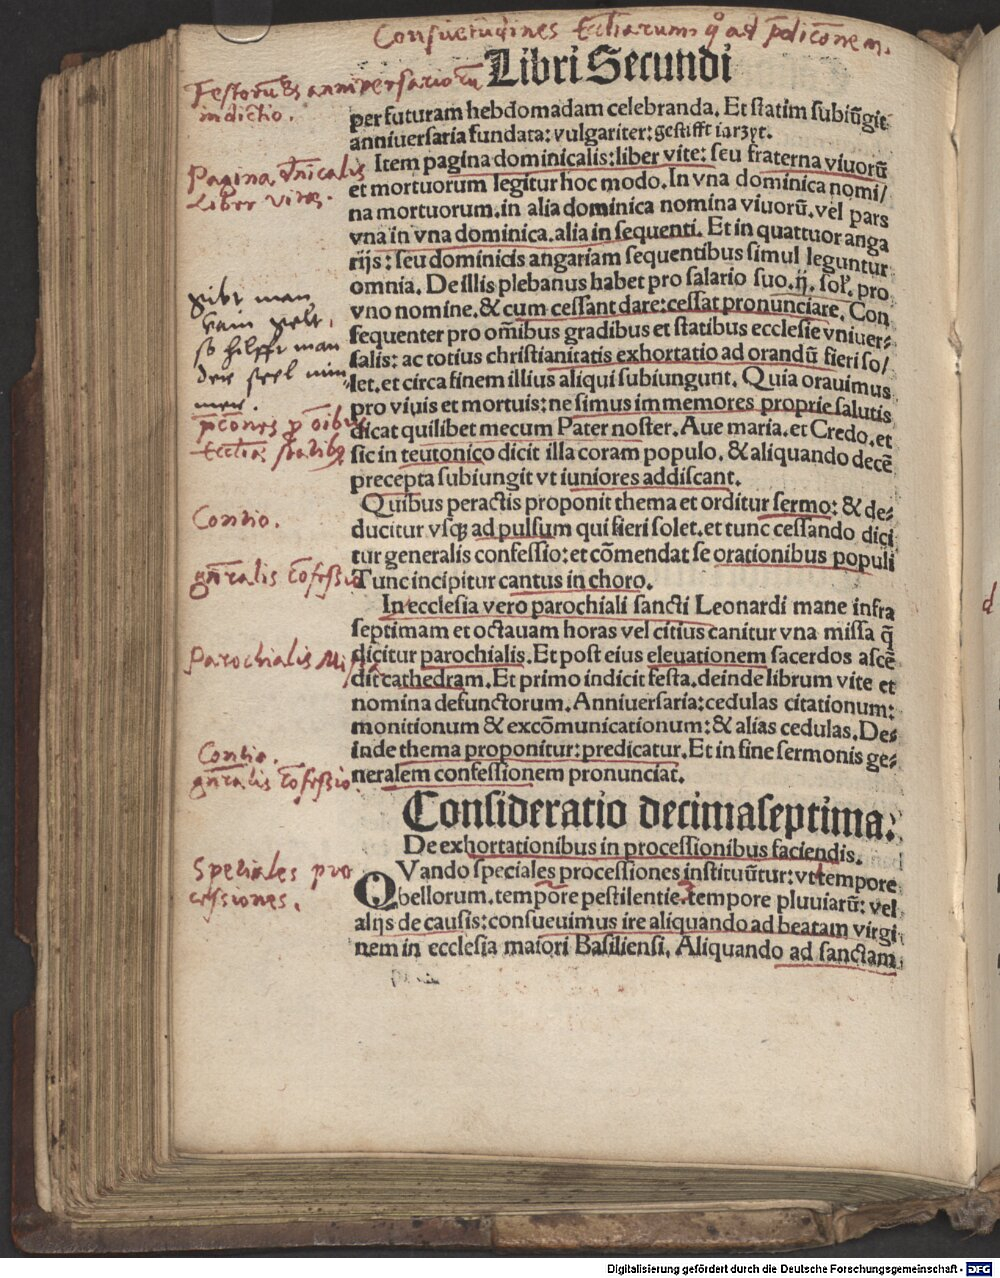 Consuetudines Eccliarum qo ad p̄dicōnem.
Libri Secundi
Festorū & anniversariorū
indictio.
per futuram hebdomadam celebranda. Et statim subiūgit
anniuersaria fundata: vulgariter: gestifft iarzyt.
Pagina dn̄icalis
Liber vitæ.
Item pagina dominicalis: liber vite: seu fraterna viuorū
et mortuorum legitur hoc modo. In vna dominica nomi/
na mortuorum. in alia dominica nomina viuorū. vel pars
vna in vna dominica. alia in sequenti. Et in quattuor anga
rijs: seu dominicis angariam sequentibus simul leguntur
omnia. De illis plebanus habet pro salario suo. ij. sol'. pro
vno nomine. & cum cessant dare: cessat pronunciare. Con
gibt man
kain gelt,
so hilfft man
der seel nim-
mer.
sequenter pro om̄ibus gradibus et statibus ecclesie vniuer-
salis: ac totius christianitatis exhortatio ad orandū fieri so/
let. et circa finem illius aliqui subiungunt. Quia orauimus
pro viuis et mortuis: ne simus immemores proprie salutis
p̄cōnes p̄ oībus
Eccliæ statibꝫ
dicat quilibet mecum Pater noster. Aue maria. et Credo. et
sic in teutonico dicit illa coram populo. & aliquando decē
precepta subiungit vt iuniores addiscant.
Contio.
Quibus peractis proponit thema et orditur sermo: & de-
ducitur vsqꝫ ad pulsum qui fieri solet. et tunc cessando dici
gn̄ralis cōfessio
tur generalis confessio: et cōmendat se orationibus populi
Tunc incipitur cantus in choro.
In ecclesia vero parochiali sancti Leonardi mane infra
septimam et octauam horas vel citius canitur vna missa q̄
Parochialis Missa
dicitur parochialis. Et post eius eleuationem sacerdos ascē
dit cathedram. Et primo indicit festa. deinde librum vite et
nomina defunctorum. Anniuersaria: cedulas citationum:
monitionum & excōmunicationum: & alias cedulas. De-
Contio.
gn̄ralis cōfessio.
inde thema proponitur: predicatur. Et in fine sermonis ge-
neralem confessionem pronunciat.
Consideratio decimaseptima.
De exhortationibus in processionibus faciendis.
Speciales pro
cessiones.
QVando speciales processiones instituūtur: vt tempore
bellorum. tempore pestilentie. tempore pluuiarū: vel
alijs de causis: consueuimus ire aliquando ad beatam virgi
nem in ecclesia maiori Basiliensi. Aliquando ad sanctam
Digitalisierung gefördert durch die Deutsche Forschungsgemeinschaft - DFG